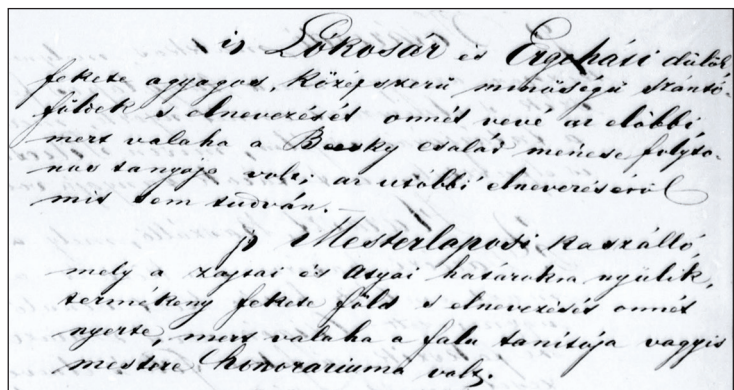 i) Lókosár és Ergoházi dülők
fekete agyagos, középszerű minőségű szántó-
földek s elnevezését onnét vevé az előbbi,
mert valaha a Becsky család ménese folyto-
nos tanyája volt; az utóbbi elnevezéséről
mit sem tudván.—
j) Mesterlaposi kaszálló,
mely a zajtai és atyai határokra nyúlik,
termékeny fekete föld s elnevezését onnét
nyerte, mert valaha a falu tanítója vagyis
mestere honorariuma volt.